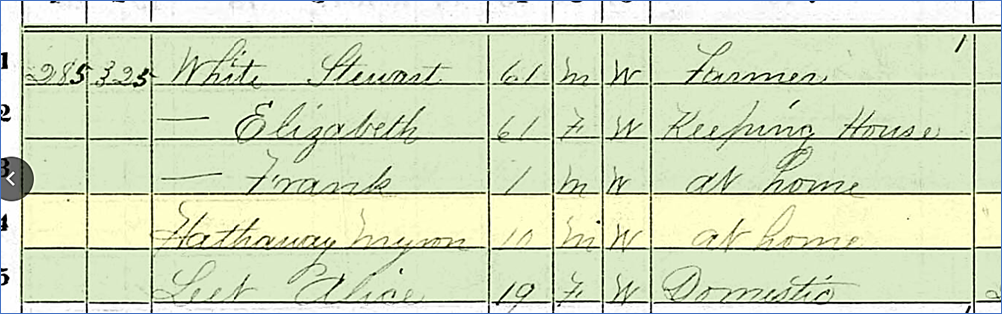 1 285 325 White Stewart 61 M W Farmer 1
2 — Elizabeth 61 F W Keeping House
3 — Frank 1 M W at home
4 Hathaway Myron 10 M W at home
5 Leet Alice 19 F W Domestic